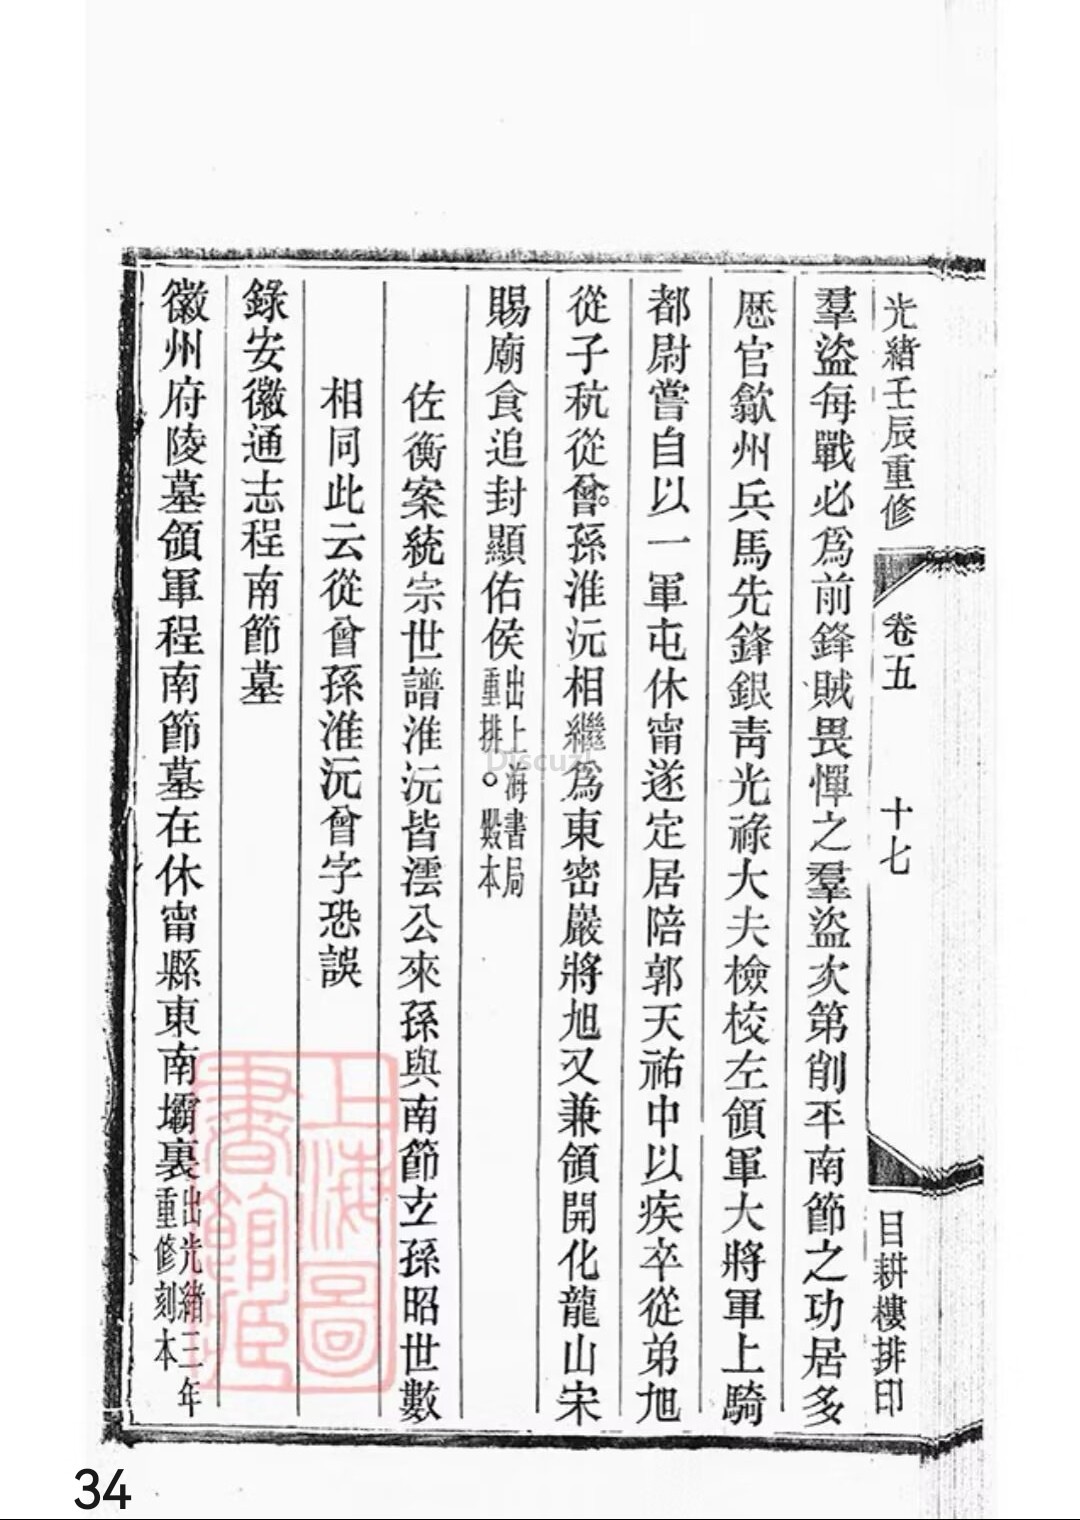 光緒壬辰重修 卷五 十七 目耕樓排印
羣盜每戰必爲前鋒賊畏憚之羣盜次第削平南節之功居多
厯官歙州兵馬先鋒銀靑光祿大夫檢校左領軍大將軍上騎
都尉嘗自以一軍屯休甯遂定居陪郭天祐中以疾卒從弟旭
從子秔從曾。孫淮沅相繼爲東密巖將旭又兼領開化龍山宋
賜廟食追封顯佑侯出上海書局
重排。殿本
佐衡案統宗世譜淮沅皆澐公來孫與南節玄孫昭世數
相同此云從曾孫淮沅曾字恐誤
錄安徽通志程南節墓
徽州府陵墓領軍程南節墓在休甯縣東南壩裏出光緒三年
重修刻本
上海圖
書館藏
Discuz!
34